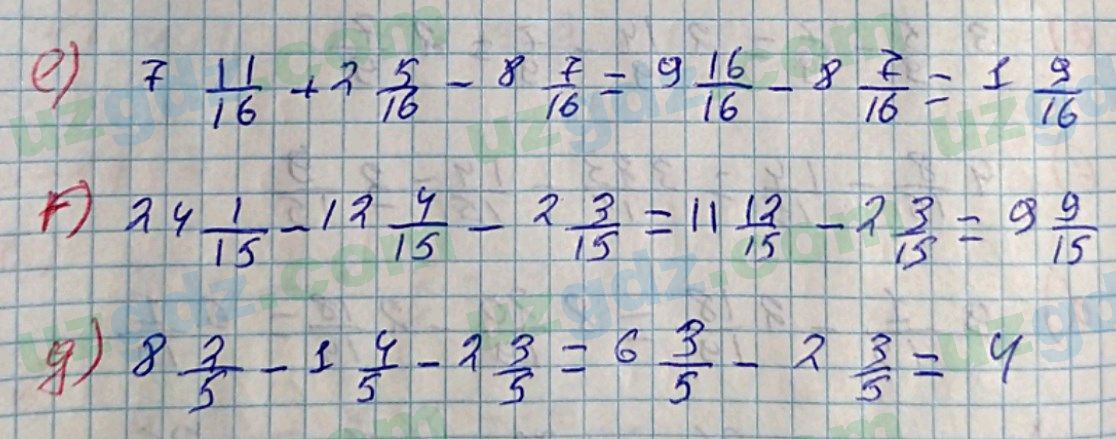 e) 7 11/16 + 2 5/16 - 8 7/16 = 9 16/16 - 8 7/16 = 1 9/16
f) 24 1/15 - 12 4/15 - 2 3/15 = 11 12/15 - 2 3/15 = 9 9/15
g) 8 2/5 - 1 4/5 - 2 3/5 = 6 3/5 - 2 3/5 = 4